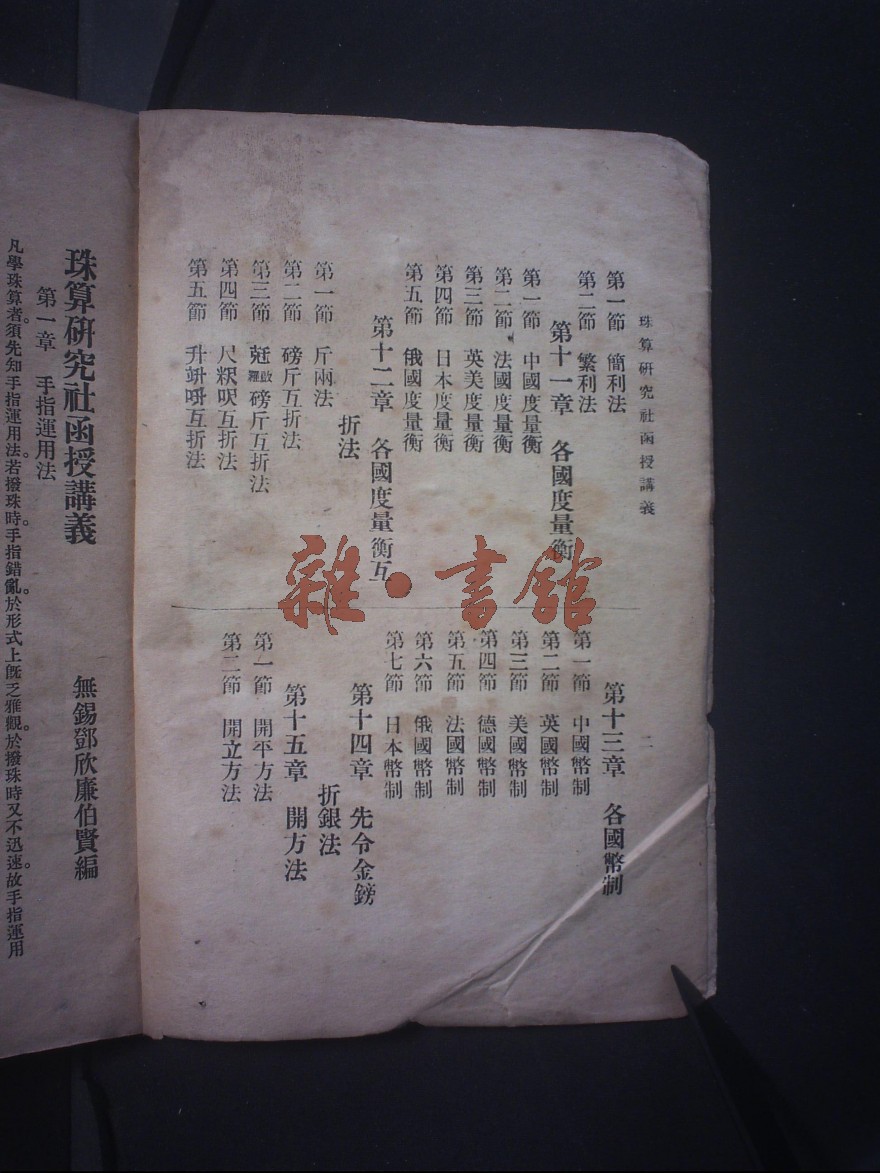 珠算研究社函授講義
二
第一節　簡利法
第二節　繁利法
第十一章　各國度量衡
第一節　中國度量衡
第二節　法國度量衡
第三節　英美度量衡
第四節　日本度量衡
第五節　俄國度量衡
第十二章　各國度量衡互
折法
第一節　斤兩法
第二節　磅斤互折法
第三節　磅斤互折法
第四節　尺粎呎互折法
第五節　升互折法
第十三章　各國幣制
第一節　中國幣制
第二節　英國幣制
第三節　美國幣制
第四節　德國幣制
第五節　法國幣制
第六節　俄國幣制
第七節　日本幣制
第十四章　先令金鎊
折銀法
第十五章　開方法
第一節　開平方法
第二節　開立方法
珠算研究社函授講義
無錫鄧欣廉伯賢編
第一章　手指運用法
凡學珠算者。須先知手指運用法。若撥珠時。手指錯亂。於形式上旣乏雅觀。於撥珠時又不迅速。故手指運用
雜·書館